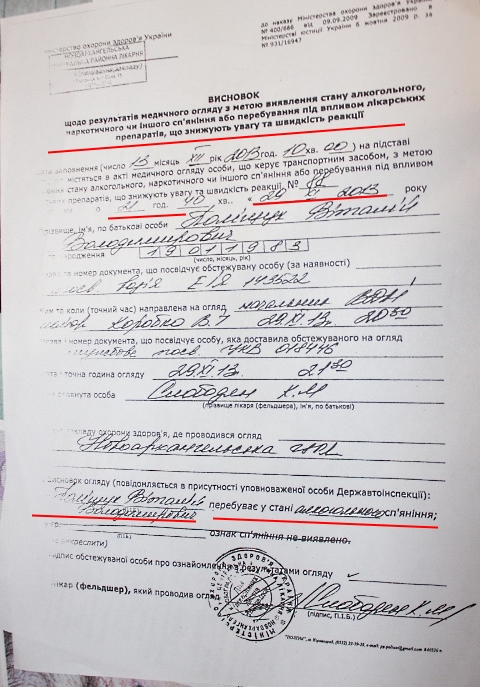 до наказу Міністерства охорони здоров'я України
№ 400/666 від 09.09.2009 Зареєстровано в
Міністерстві юстиції України 6 жовтня 2009 р. за
№ 931/16947
іністерство охорони здоров'я України
НОВОАРХАНГЕЛЬСЬКА
РАЙОННА ЛІКАРНЯ
ВИСНОВОК
щодо результатів медичного огляду з метою виявлення стану алкогольного,
наркотичного чи іншого сп'яніння або перебування під впливом лікарських
препаратів, що знижують увагу та швидкість реакції
ата заповнення (число 13 місяць XII рік 2013 год. 10 хв. 00) на підставі
містяться в акті медичного огляду особи, що керує транспортним засобом, з метою
ення стану алкогольного, наркотичного чи іншого сп'яніння або перебування під впливом
препаратів, що знижують увагу та швидкість реакції, №
о 21 год. 40 хв. « 29 » XI 2013 року
різвище, ім'я, по батькові особи Поліщук Віталій
Володимирович
народження 19011983
(число, місяць, рік)
та номер документа, що посвідчує обстежувану особу (за наявності)
посв. серія 143522
им та коли (точний час) направлена на огляд начальник ВДАІ
майор Коробко В. 29.XI.13. 20 50
номер документа, що посвідчує особу, яка доставила обстежуваного на огляд
посв. УКВ 018446
та точна година огляду 29.XI 13. 21 30
глянута особа Слободен Х.М
(прізвище лікаря (фельдшера), ім'я, по батькові)
закладу охорони здоров'я, де проводився огляд
Новоархангельська ЦРЛ
исновок огляду (повідомляється в присутності уповноваженої особи Державтоінспекції):
Поліщук Віталій
Володимирович перебуває у стані алкогольного сп'яніння;
ознак сп'яніння не виявлено.
викреслити)
ідпис обстежуваної особи про ознайомлення з результатами огляду
лікар (фельдшер), який проводив огляд Слободен Х.М
(підпис, П.І.Б.)